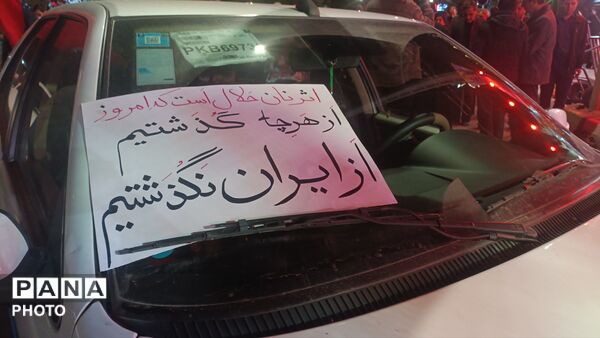 PKB697
اثر نان حلال است که امروز
از هرچه گذشتیم
از ایران نگذشتیم
PANA
PHOTO